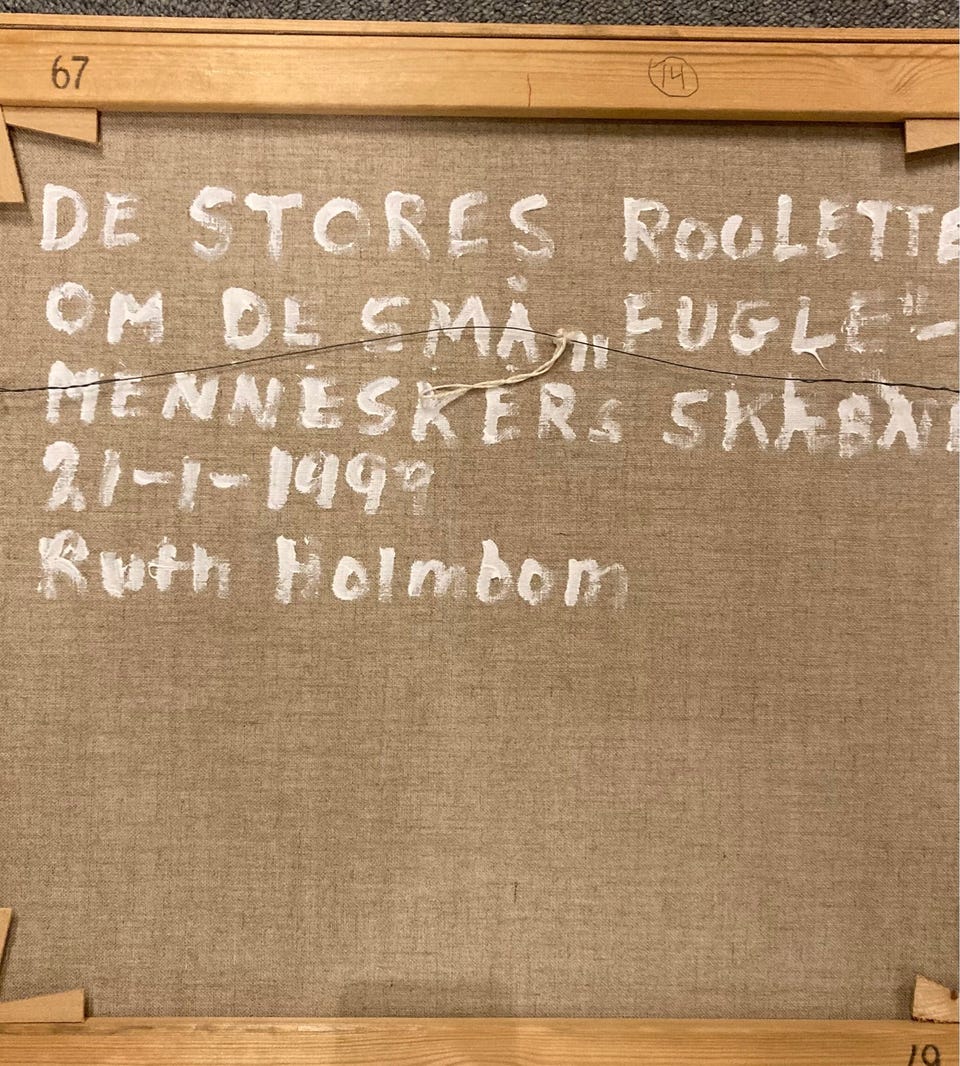 67 14
DE STORES ROULETTE
OM DE SMÅ „FUGLE"-
MENNESKERS SKÆBNE
21-1-1999
Ruth Holmbom
19